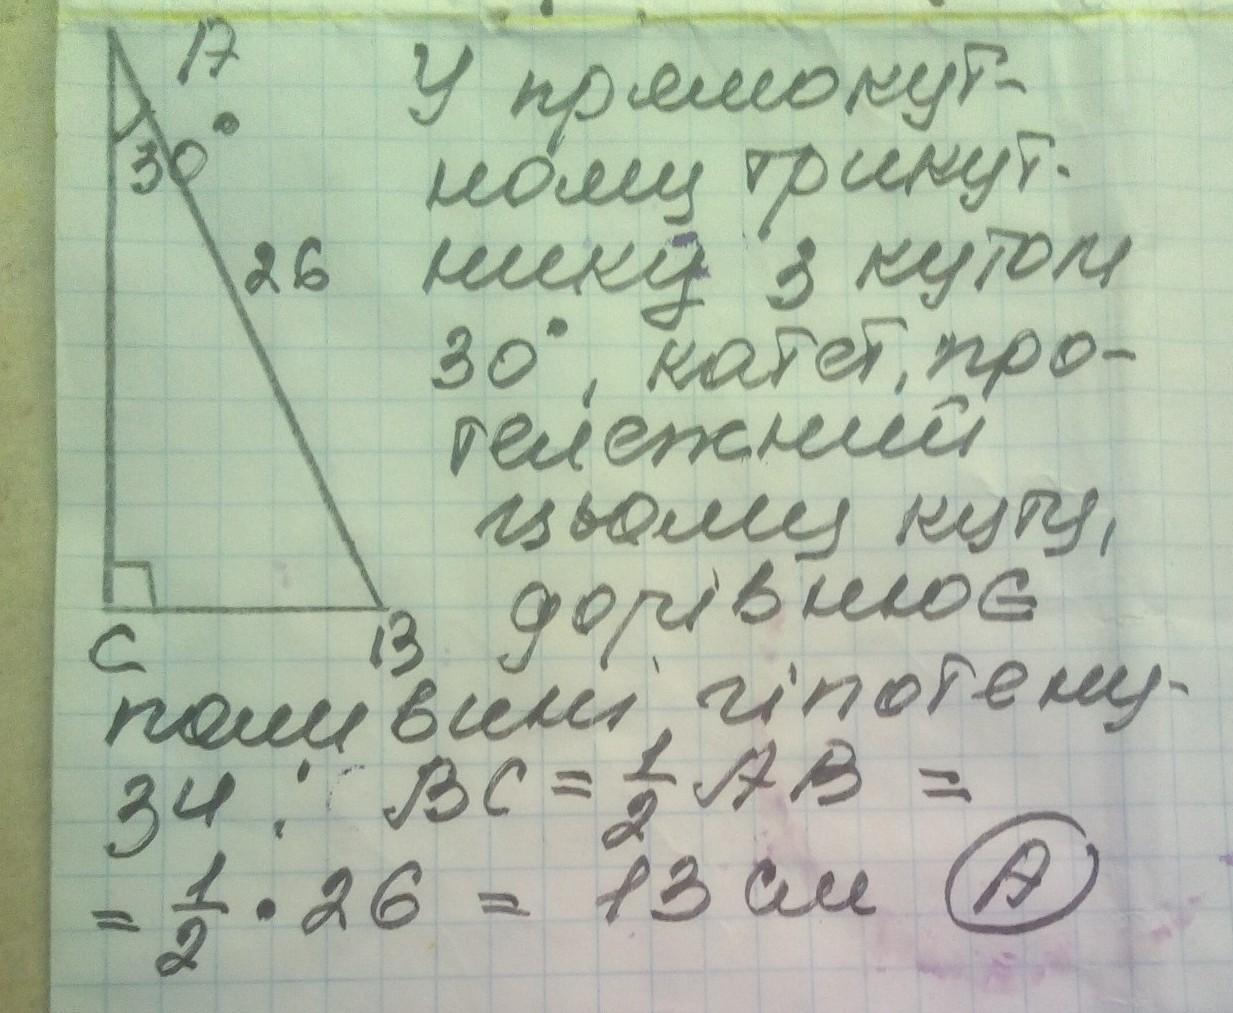 A
30°
26
C
B
У прямокут-
ному трикут-
нику з кутом
30°, катет, про-
тележний
цьому куту,
дорівнює
половині гіпотену-
зи: BC = 1/2 AB =
= 1/2 • 26 = 13 см A